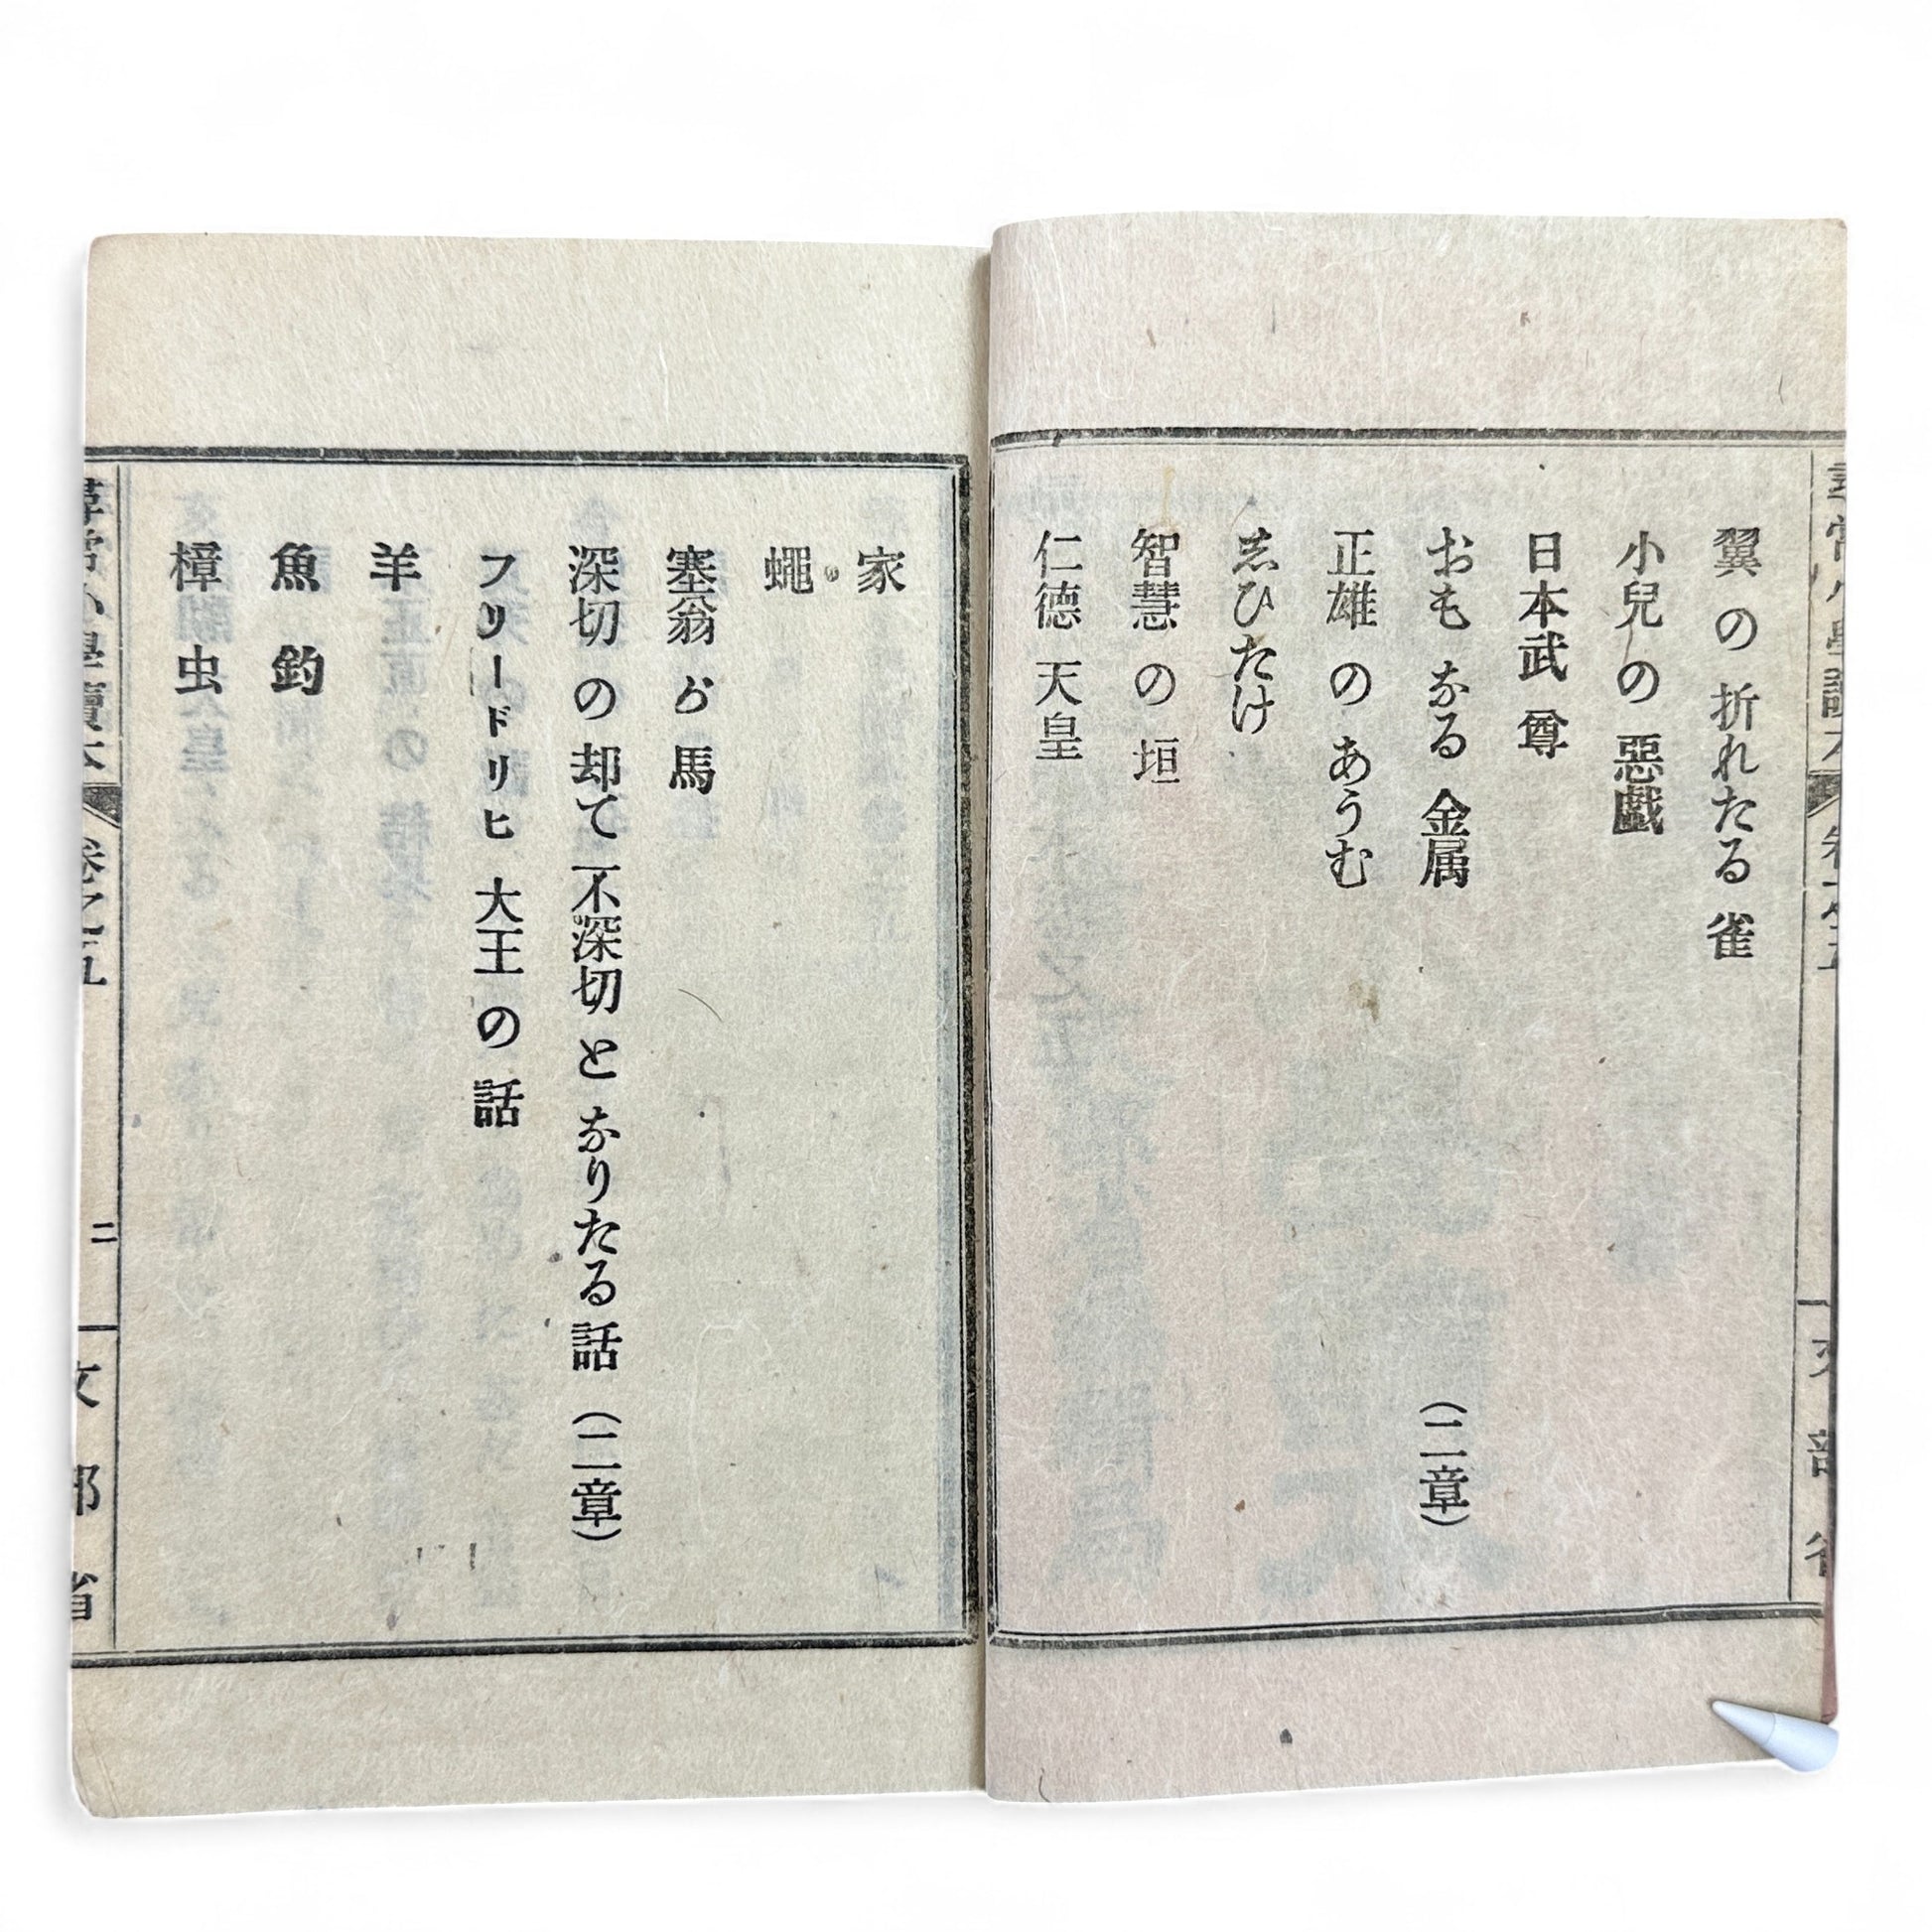 翼の折れたる雀
小兒の惡戲
日本武尊
おもなる金属
（二章）
正雄のあうむ
志ひたけ
智慧の垣
仁德天皇
家
蠅
塞翁が馬
深切の却て不深切となりたる話（二章）
フリードリヒ大王の話
羊
魚釣
樟虫
尋常小學讀本
卷之五
二
文部省